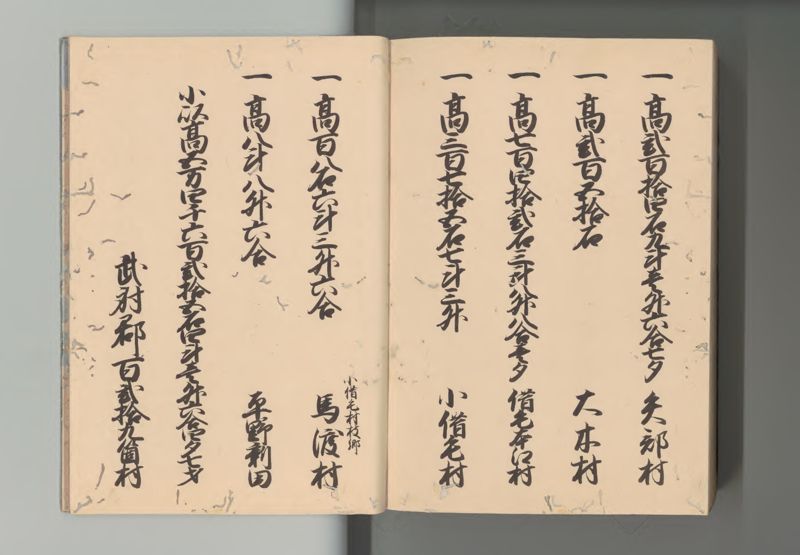 一 高弐百拾四石九斗壱升六合七夕 矢部村
一 高弐百五拾石 大木村
一 高七百四拾弐石三斗八升八合壱夕 借毛本江村
一 高三百七拾五石七斗三升 小借毛村
一 高百八石六斗三升六合 小借毛村枝郷 馬渡村
一 高八斗八升六合 平野新田
小以高五万四千六百弐拾五石四斗壱升六合四夕七才
武射郡 百弐拾九箇村